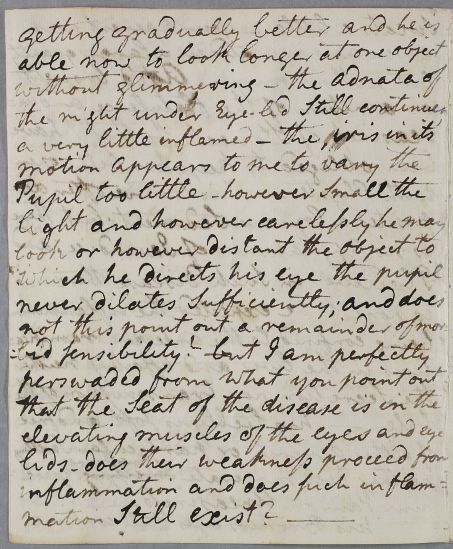 getting gradually better and he is
able now to look longer at one object
without glimmering - the adnata of
the right under Eye-lid Still continues
a very little inflamed - the iris in its
motion appears to me to vary the
Pupil too little - however Small the
light and however carelessly he may
look or however distant the object to
which he directs his eye the pupil
never dilates Sufficiently; and does
not this point out a remainder of mor-
=bid sensibility? - but I am perfectly
perswaded from what you point out
that the Seat of the disease is in the
elevating muscles of the eyes and eye
lids - does their weakness proceed from
inflammation and does such inflam-
mation Still exist? ——